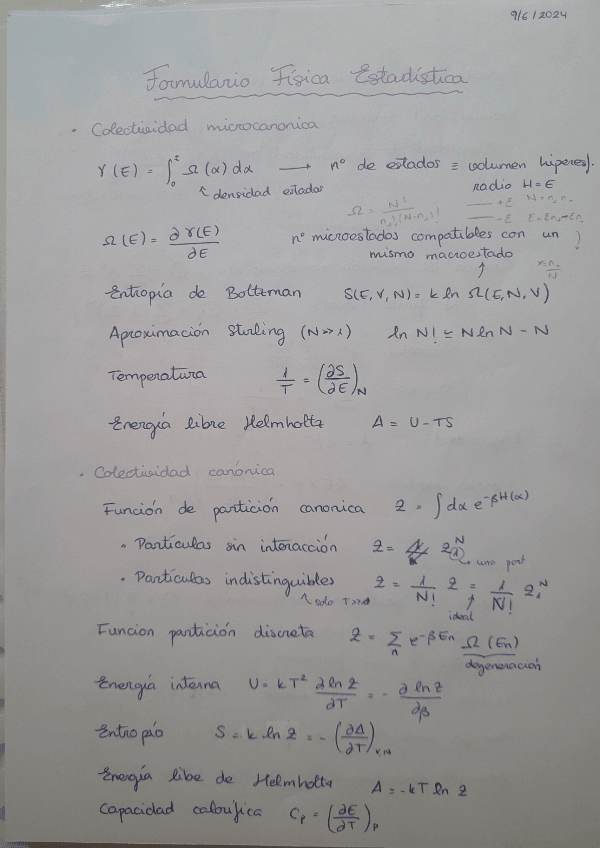 9/6/2024
Formulario Física Estadística
• Colectividad microcanonica
γ(E) = ∫₀ᴱ Ω(α) dα → nº de estados ≡ volumen hipersf.
↖ densidad estados
radio H=E
Ω = N!/(n₊!(N-n₊)!)
+ε
-ε
Ω(E) = ∂γ(E)/∂E nº microestados compatibles con un
mismo macroestado
Entropía de Boltzman S(E,V,N) = k ln Ω(E,N,V)
Aproximación Stirling (N>>1) ln N! ≃ N ln N - N
Temperatura 1/T = (∂S/∂E)_N
Energía libre Helmholtz A = U - TS
• Colectividad canónica
Función de partición canonica Z = ∫ dα e^(-βH(α))
• Partículas sin interacción Z = Z₁^N
una part
• Partículas indistinguibles Z = 1/N! Z = 1/N! Z₁^N
↖ solo T>>
ideal
Funcion partición discreta Z = Σ_n e^(-βEn) Ω(En)
degeneración
Energía interna U = kT² ∂ln Z/∂T = - ∂ln Z/∂β
Entropía S = k ln Z = -(∂A/∂T)_V,N
Energía libe de Helmholtz A = -kT ln Z
Capacidad calorífica C_p = (∂E/∂T)_p